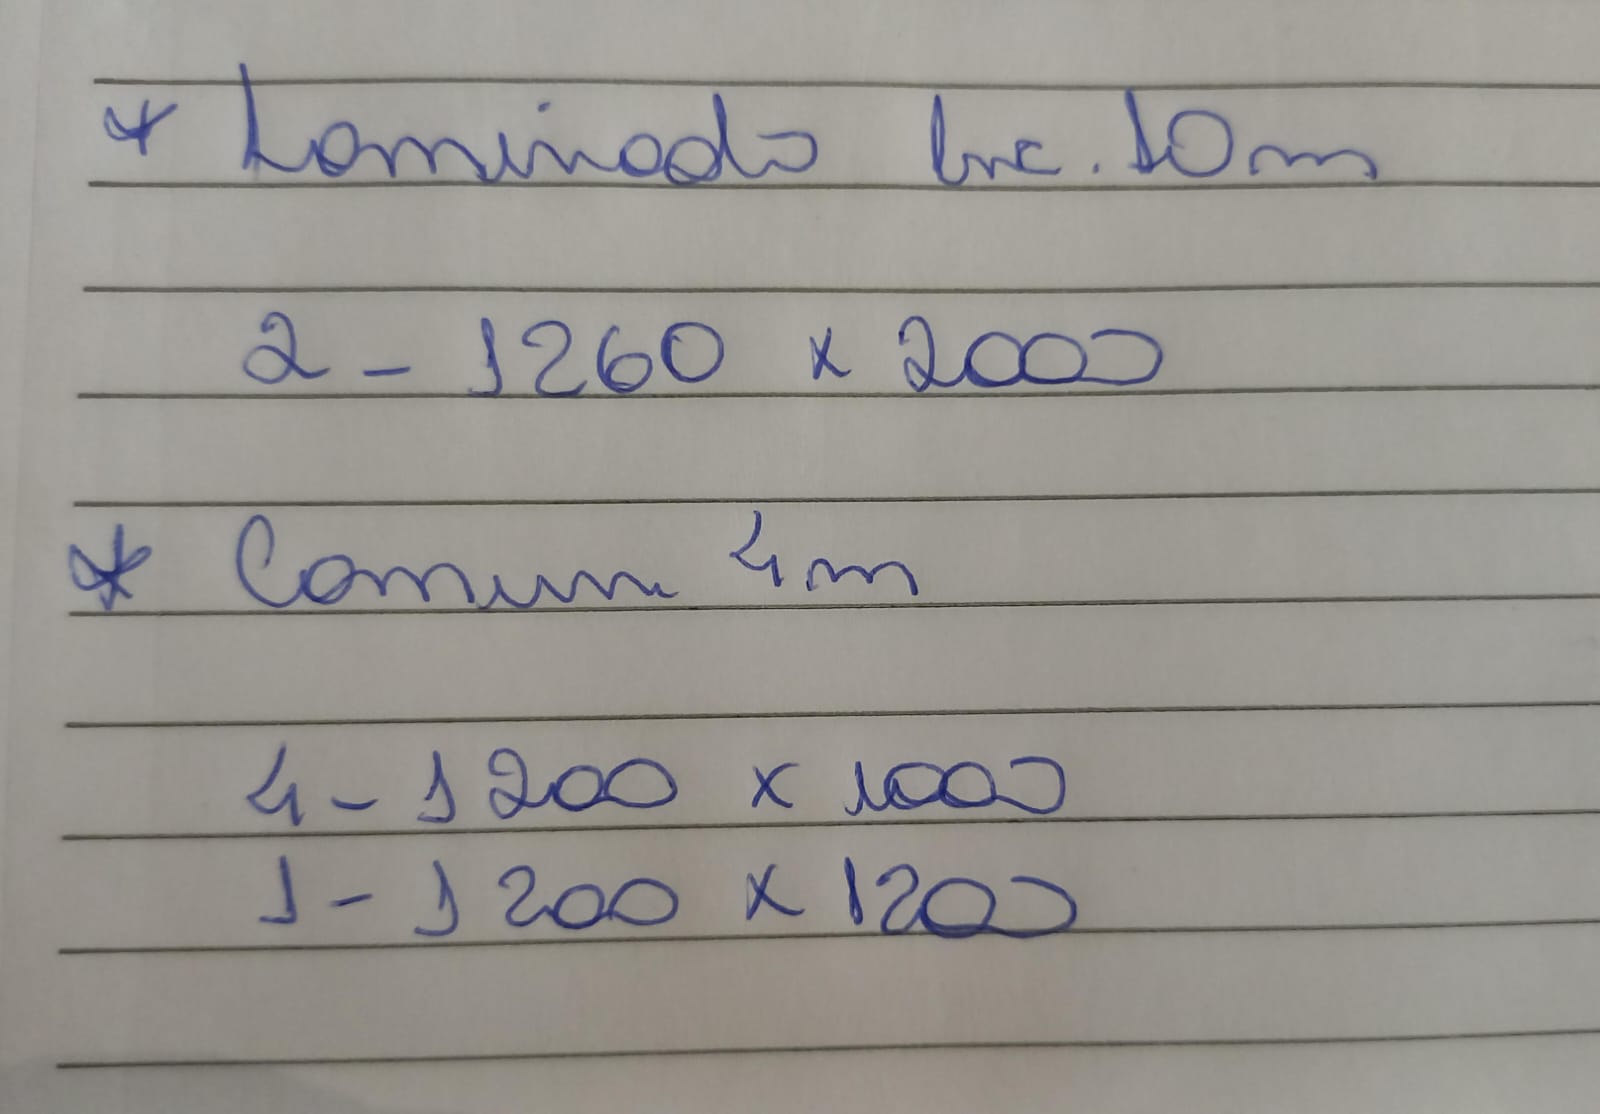 * Laminado Inc. 10m
2 - 1260 x 2000
* Comum 4m
4 - 1200 x 1000
1 - 1200 x 1200